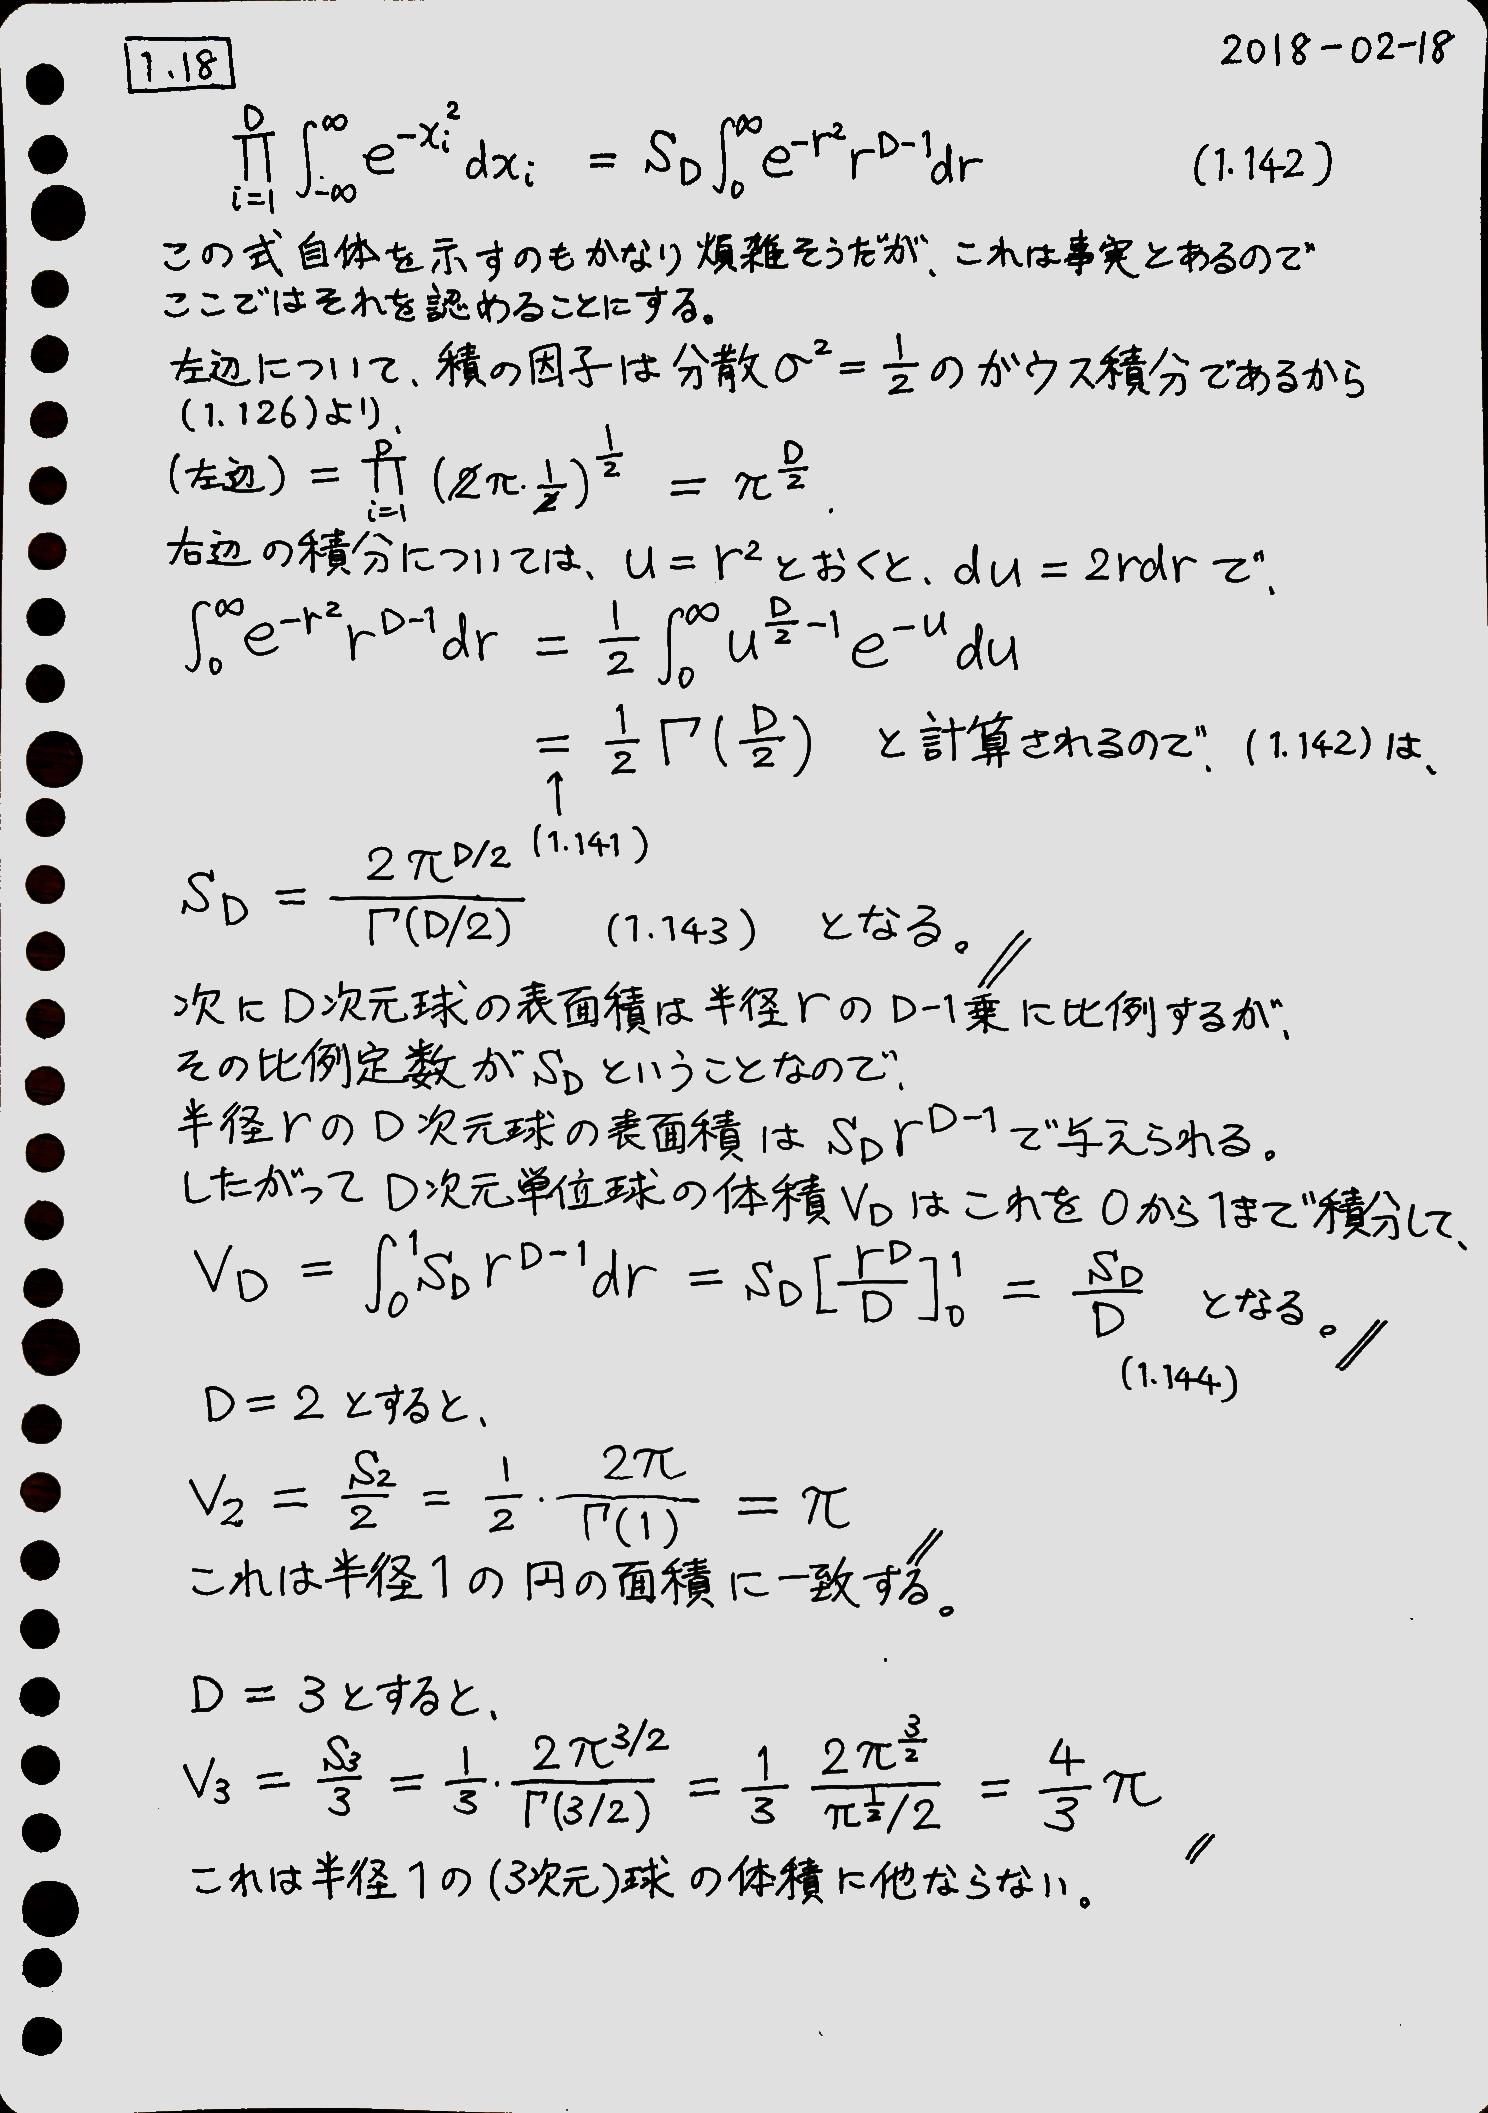 1.18 2018-02-18
∏_{i=1}^{D} ∫_{-∞}^{∞} e^{-x_i^2} dx_i = S_D ∫_0^∞ e^{-r^2} r^{D-1} dr (1.142)
この式自体を示すのもかなり煩雑そうだが、これは事実とあるので
ここではそれを認めることにする。
左辺について、積の因子は分散σ^2 = 1/2 のガウス積分であるから
(1.126)より、
(左辺) = ∏_{i=1}^{D} (2π・1/2)^{1/2} = π^{D/2}.
右辺の積分については、u = r^2 とおくと、du = 2rdr で、
∫_0^∞ e^{-r^2} r^{D-1} dr = 1/2 ∫_0^∞ u^{D/2 -1} e^{-u} du
= 1/2 Γ(D/2) と計算されるので、(1.142)は、
↑
(1.141)
S_D = 2π^{D/2} / Γ(D/2) (1.143) となる。//
次にD次元球の表面積は半径rのD-1乗に比例するが、
その比例定数がS_Dということなので、
半径rのD次元球の表面積は S_D r^{D-1} で与えられる。
したがってD次元単位球の体積V_Dはこれを0から1まで積分して、
V_D = ∫_0^1 S_D r^{D-1} dr = S_D [r^D/D]_0^1 = S_D/D となる。//
(1.144)
D = 2 とすると、
V_2 = S_2/2 = 1/2・2π/Γ(1) = π //
これは半径1の円の面積に一致する。
D = 3 とすると、
V_3 = S_3/3 = 1/3・2π^{3/2}/Γ(3/2) = 1/3 2π^{3/2}/(π^{1/2}/2) = 4/3 π //
これは半径1の(3次元)球の体積に他ならない。